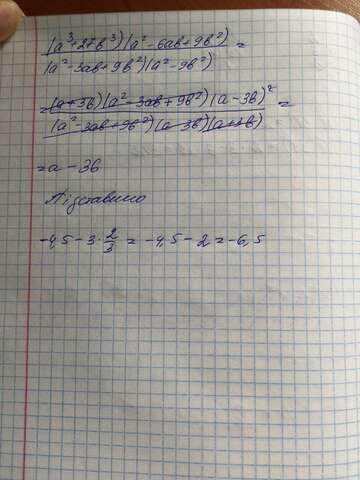 (a³+27b³)(a²-6ab+9b²) =
(a²-3ab+9b²)(a²-9b²)
=(a+3b)(a²-3ab+9b²)(a-3b)² =
(a²-3ab+9b²)(a-3b)(a+3b)
=a-3b
Підставимо
-4,5-3·2/3 = -4,5-2=-6,5